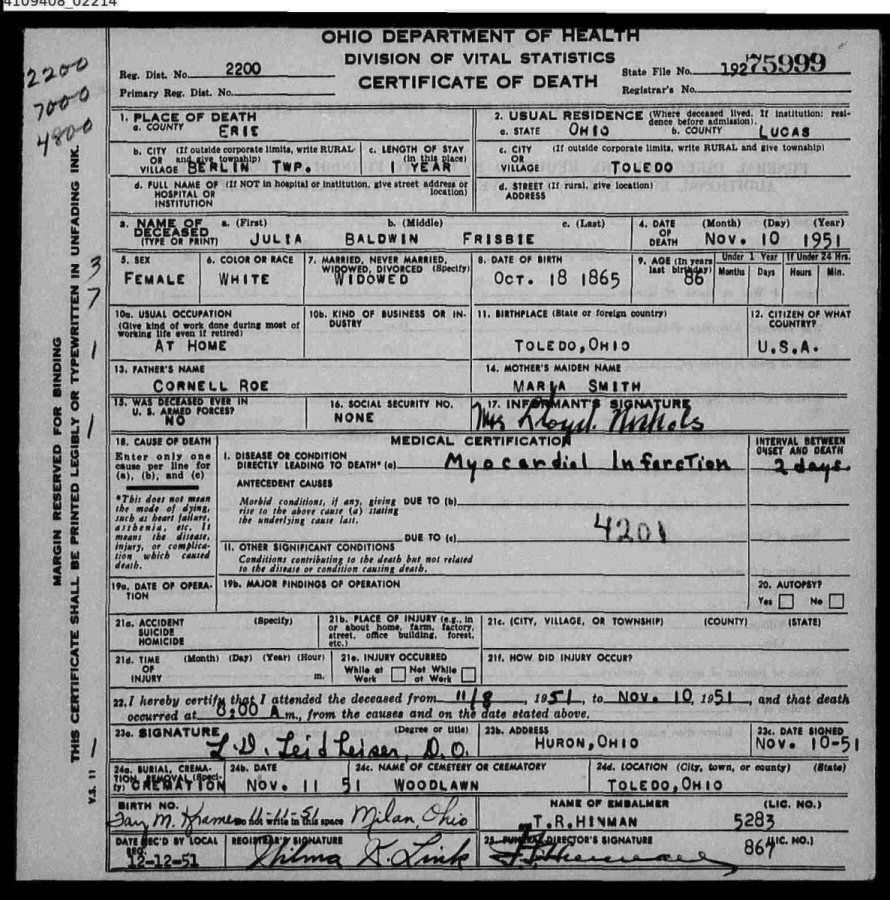 4109408_02214
OHIO DEPARTMENT OF HEALTH
DIVISION OF VITAL STATISTICS
CERTIFICATE OF DEATH
2200
7000
4800
Reg. Dist. No. 2200
Primary Reg. Dist. No.
State File No. 192 75999
Registrar's No.
1. PLACE OF DEATH
a. COUNTY ERIE
2. USUAL RESIDENCE (Where deceased lived. If institution: residence before admission).
a. STATE OHIO b. COUNTY LUCAS
b. CITY (If outside corporate limits, write RURAL and give township) OR VILLAGE BERLIN TWP.
c. LENGTH OF STAY (in this place) YEAR
c. CITY (If outside corporate limits, write RURAL and give township) OR VILLAGE TOLEDO
d. FULL NAME OF (If NOT in hospital or institution, give street address or location) HOSPITAL OR INSTITUTION
d. STREET (If rural, give location) ADDRESS
3. NAME OF DECEASED (TYPE OR PRINT) a. (First) b. (Middle) c. (Last)
JULIA BALDWIN FRISBIE
4. DATE OF DEATH (Month) (Day) (Year)
NOV. 10 1951
5. SEX
FEMALE
6. COLOR OR RACE
WHITE
7. MARRIED, NEVER MARRIED, WIDOWED, DIVORCED (Specify)
WIDOWED
8. DATE OF BIRTH
OCT. 18 1865
9. AGE (In years last birthday) 86
Under 1 Year Months Days
If Under 24 Hrs. Hours Min.
10a. USUAL OCCUPATION (Give kind of work done during most of working life even if retired)
AT HOME
10b. KIND OF BUSINESS OR INDUSTRY
11. BIRTHPLACE (State or foreign country)
TOLEDO, OHIO
12. CITIZEN OF WHAT COUNTRY?
U.S.A.
13. FATHER'S NAME
CORNELL ROE
14. MOTHER'S MAIDEN NAME
MARIA SMITH
15. WAS DECEASED EVER IN U. S. ARMED FORCES?
NO
16. SOCIAL SECURITY NO.
NONE
17. INFORMANT'S SIGNATURE
Mrs Lloyd Nichols
18. CAUSE OF DEATH
Enter only one cause per line for (a), (b), and (c)
*This does not mean the mode of dying, such as heart failure, asthenia, etc. It means the disease, injury, or complication which caused death.
MEDICAL CERTIFICATION
INTERVAL BETWEEN ONSET AND DEATH
I. DISEASE OR CONDITION DIRECTLY LEADING TO DEATH* (a) Myocardial Infarction 2 days
ANTECEDENT CAUSES
Morbid conditions, if any, giving rise to the above cause (a) stating the underlying cause last.
DUE TO (b)
DUE TO (c)
4201
II. OTHER SIGNIFICANT CONDITIONS
Conditions contributing to the death but not related to the disease or condition causing death.
19a. DATE OF OPERATION
19b. MAJOR FINDINGS OF OPERATION
20. AUTOPSY?
Yes No
21a. ACCIDENT SUICIDE HOMICIDE (Specify)
21b. PLACE OF INJURY (e.g., in or about home, farm, factory, street, office building, forest, etc.)
21c. (CITY, VILLAGE, OR TOWNSHIP) (COUNTY) (STATE)
21d. TIME OF INJURY (Month) (Day) (Year) (Hour) m.
21e. INJURY OCCURRED
While at Work Not While at Work
21f. HOW DID INJURY OCCUR?
22. I hereby certify that I attended the deceased from 11/8, 1951, to Nov. 10, 1951, and that death
occurred at 8:00 A m., from the causes and on the date stated above.
23a. SIGNATURE (Degree or title)
L.D. Leidheiser, D.O.
23b. ADDRESS
HURON, OHIO
23c. DATE SIGNED
NOV. 10-51
24a. BURIAL, CREMATION, REMOVAL (Specify)
CREMATION
24b. DATE
NOV. 11 51
24c. NAME OF CEMETERY OR CREMATORY
WOODLAWN
24d. LOCATION (City, town, or county) (State)
TOLEDO, OHIO
BIRTH NO.
Do not write in this space
Fay M. Kramer 11-11-51 Milan, Ohio
NAME OF EMBALMER (LIC. NO.)
T.R. HINMAN 5283
DATE REC'D BY LOCAL REG.
12-12-51
REGISTRAR'S SIGNATURE
Wilma K. Link
25. FUNERAL DIRECTOR'S SIGNATURE (LIC. NO.)
864
MARGIN RESERVED FOR BINDING
THIS CERTIFICATE SHALL BE PRINTED LEGIBLY OR TYPEWRITTEN IN UNFADING INK.
V.S. 11
3
7
1
1
1